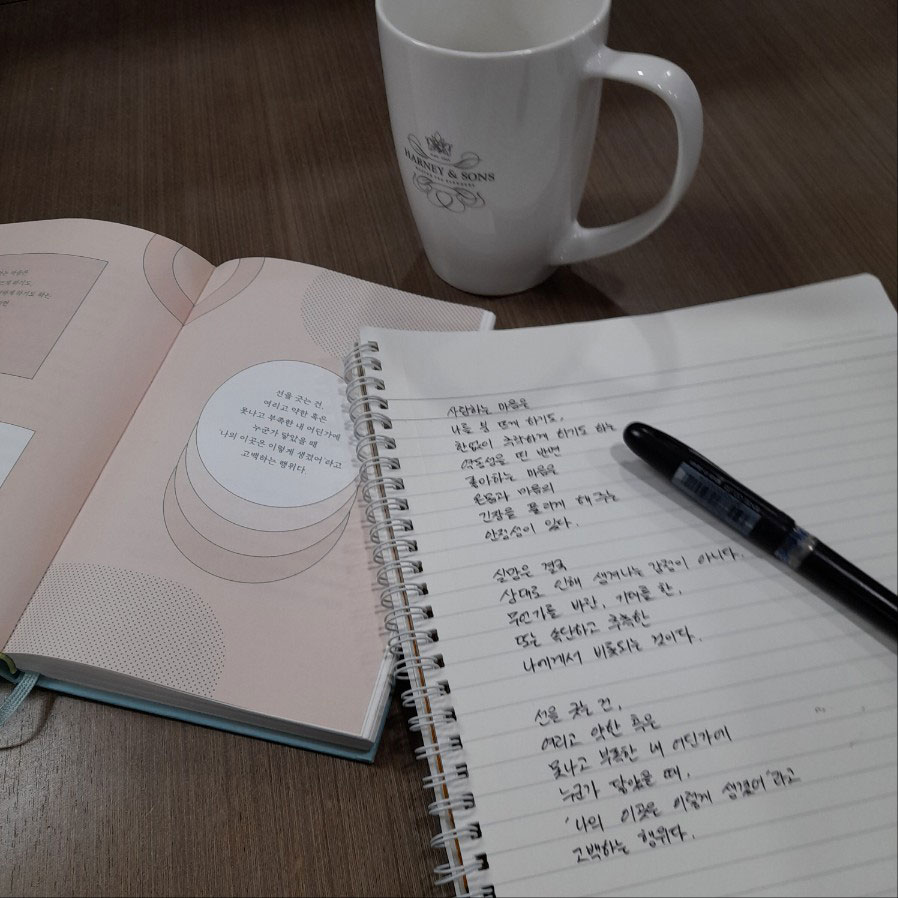 HARNEY & SONS
MASTER TEA BLENDERS
선을 긋는 건,
여리고 약한 혹은
못나고 부족한 내 어딘가에
누군가 닿았을 때
'나의 이곳은 이렇게 생겼어'라고
고백하는 행위다.
사랑하는 마음은
나를 붕 뜨게 하기도,
한없이 추락하게 하기도 하는
역동성을 띤 반면
좋아하는 마음은
온몸과 마음의
긴장을 풀리게 해 주는
안정성이 있다.
실망은 결국
상대로 인해 생겨나는 감정이 아니다.
무언가를 바란, 기대를 한,
또는 속단하고 추측한
나에게서 비롯되는 것이다.
선을 긋는 건,
여리고 약한 혹은
못나고 부족한 내 어딘가에
누군가 닿았을 때,
'나의 이곳은 이렇게 생겼어'라고
고백하는 행위다.